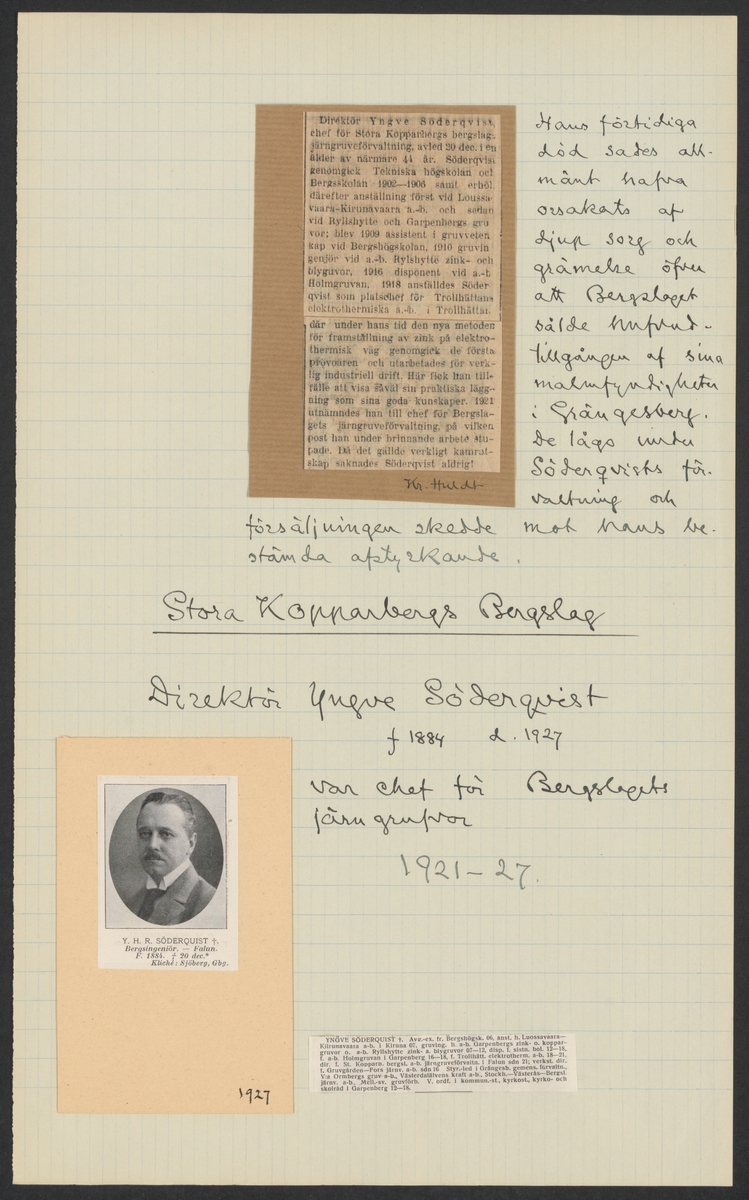 Direktör Yngve Söderqvist,
chef för Stora Kopparbergs bergslags
järngruveförvaltning, avled 20 dec. i en
ålder av närmare 44 år. Söderqvist
genomgick Tekniska högskolan och
Bergsskolan 1902—1906 samt erhöl
därefter anställning först vid Loussa-
vaara-Kirunavaara a.-b. och sedan
vid Ryllshytte och Garpenbergs gru-
vor; blev 1909 assistent i gruvveten
kap vid Bergshögskolan, 1910 gruvin
genjör vid a.-b. Rylshytte zink- och
blyguvor, 1916 disponent vid a.-b.
Holmgruvan, 1918 anställdes Söder
qvist som platschef för Trollhättans
elektrothermiska a.-b. i Trollhättan,
där under hans tid den nya metoden
för framställning av zink på elektro-
thermisk väg genomgick de första
provoåren och utarbetades för verk-
lig industriell drift. Här fick han till-
fälle att visa såväl sin praktiska lägg-
ning som sina goda kunskaper. 1921
utnämndes han till chef för Bergsla-
gets järngruveförvaltning, på vilken
post han under brinnande arbete stu-
pade. Då det gällde verkligt kamrat-
skap saknades Söderqvist aldrig!
Kr. Huldt
Hans förtidiga
död sades all-
mänt hafva
orsakats af
djup sorg och
grämelse öfver
att Bergslaget
sålde hufvud-
tillgången af sina
malmfyndigheter
i Grängesberg.
De lågo under
Söderqvists för-
valtning och
försäljningen skedde mot hans be-
stämda afstyrkande.
Stora Kopparbergs Bergslag
Direktör Yngve Söderqvist
f 1884 d. 1927
var chef för Bergslagets
järngrufvor
1921-27.
Y. H. R. SÖDERQUIST †.
Bergsingeniör. — Falun.
F. 1884. † 20 dec.*
Kliché: Sjöberg, Gbg.
1927
YNGVE SÖDERQUIST †. Avg.-ex. fr. Bergshögsk. 06, anst. h. Luossavaara—
Kiirunavaara a-b. i Kiruna 07, gruving. b. a-b. Garpenbergs zink- o. koppar-
gruvor o. a-b. Ryllshytte zink- a. blygruvor 07—12, disp. f. sista. bol. 12—18,
f. a-b. Holmgruvan i Garpenberg 16—18, f. Trollhätt. elektrotherm. a-b. 18—21,
dir. f. St. Kopparb. bergsl. a-b. järngruveförvaltn. i Falun sdn 21; verkst. dir.
f. Gruvgården—Fors järnv. a-b. sdn 16 Styr.-led i Grängesb. gemens. förvaltn.,
V:a Ormbergs gruv a-b., Västerdalälvens kraft a-b., Stockh.—Västerås—Bergsl.
järnv. a-b., Mell.-sv. gruvförb. V. ordf. i kommun.-st., kyrkost., kyrko- och
skolråd i Garpenberg 12—18.